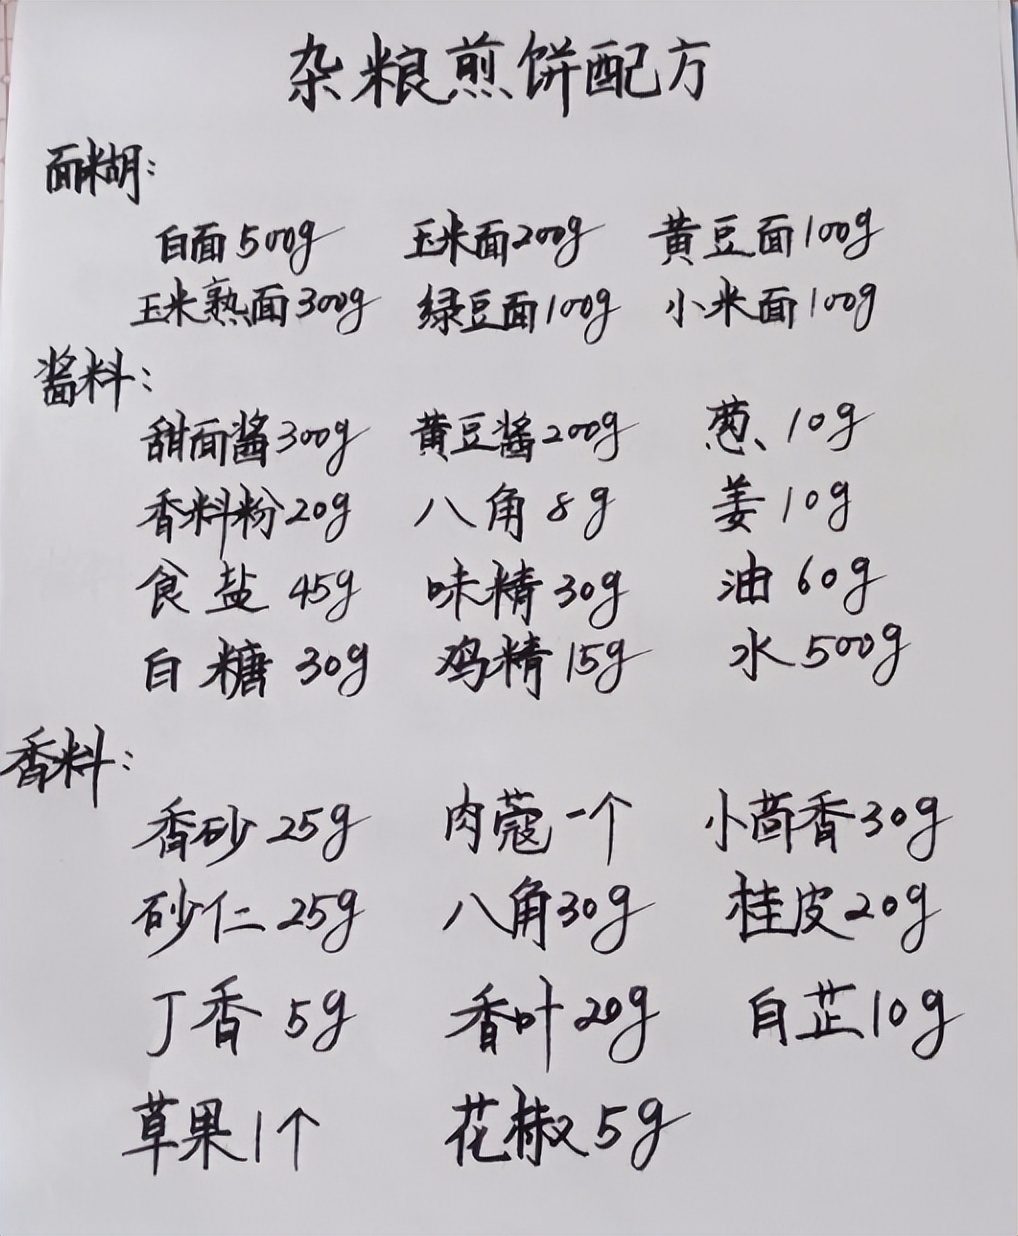 杂粮煎饼配方
面糊：
白面500g 玉米面200g 黄豆面100g
玉米熟面300g 绿豆面100g 小米面100g
酱料：
甜面酱300g 黄豆酱200g 葱、10g
香料粉20g 八角8g 姜10g
食盐45g 味精30g 油60g
白糖30g 鸡精15g 水500g
香料：
香砂25g 肉蔻一个 小茴香30g
砂仁25g 八角30g 桂皮20g
丁香5g 香叶20g 白芷10g
草果1个 花椒5g